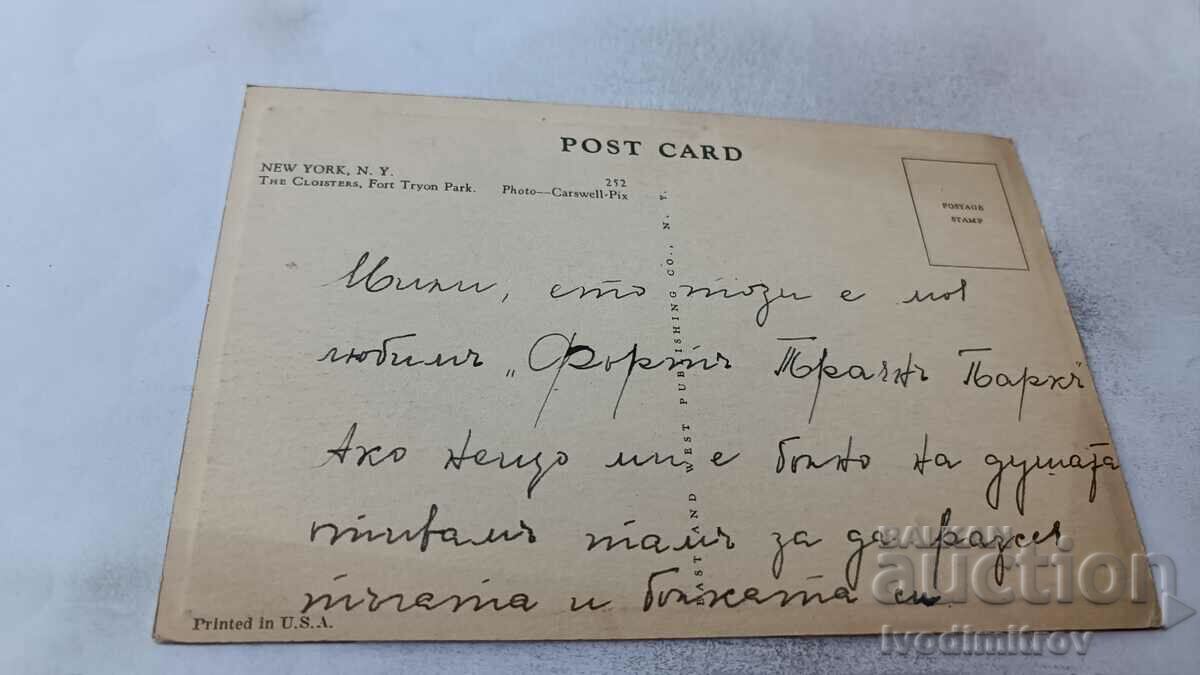 POST CARD
NEW YORK, N. Y.
THE CLOISTERS, Fort Tryon Park. Photo—Carswell-Pix
252
POSTAGE
STAMP
EAST AND WEST PUBLISHING CO., N. Y.
Мили, ето този е моя
любимъ „Фортъ Трачнъ Паркъ"
Ако нещо ми е болно на душата
отивамъ тамъ за да разсея
тъгата и болката си.
Printed in U.S.A.
BALKAN
auction
Ivodimitrov